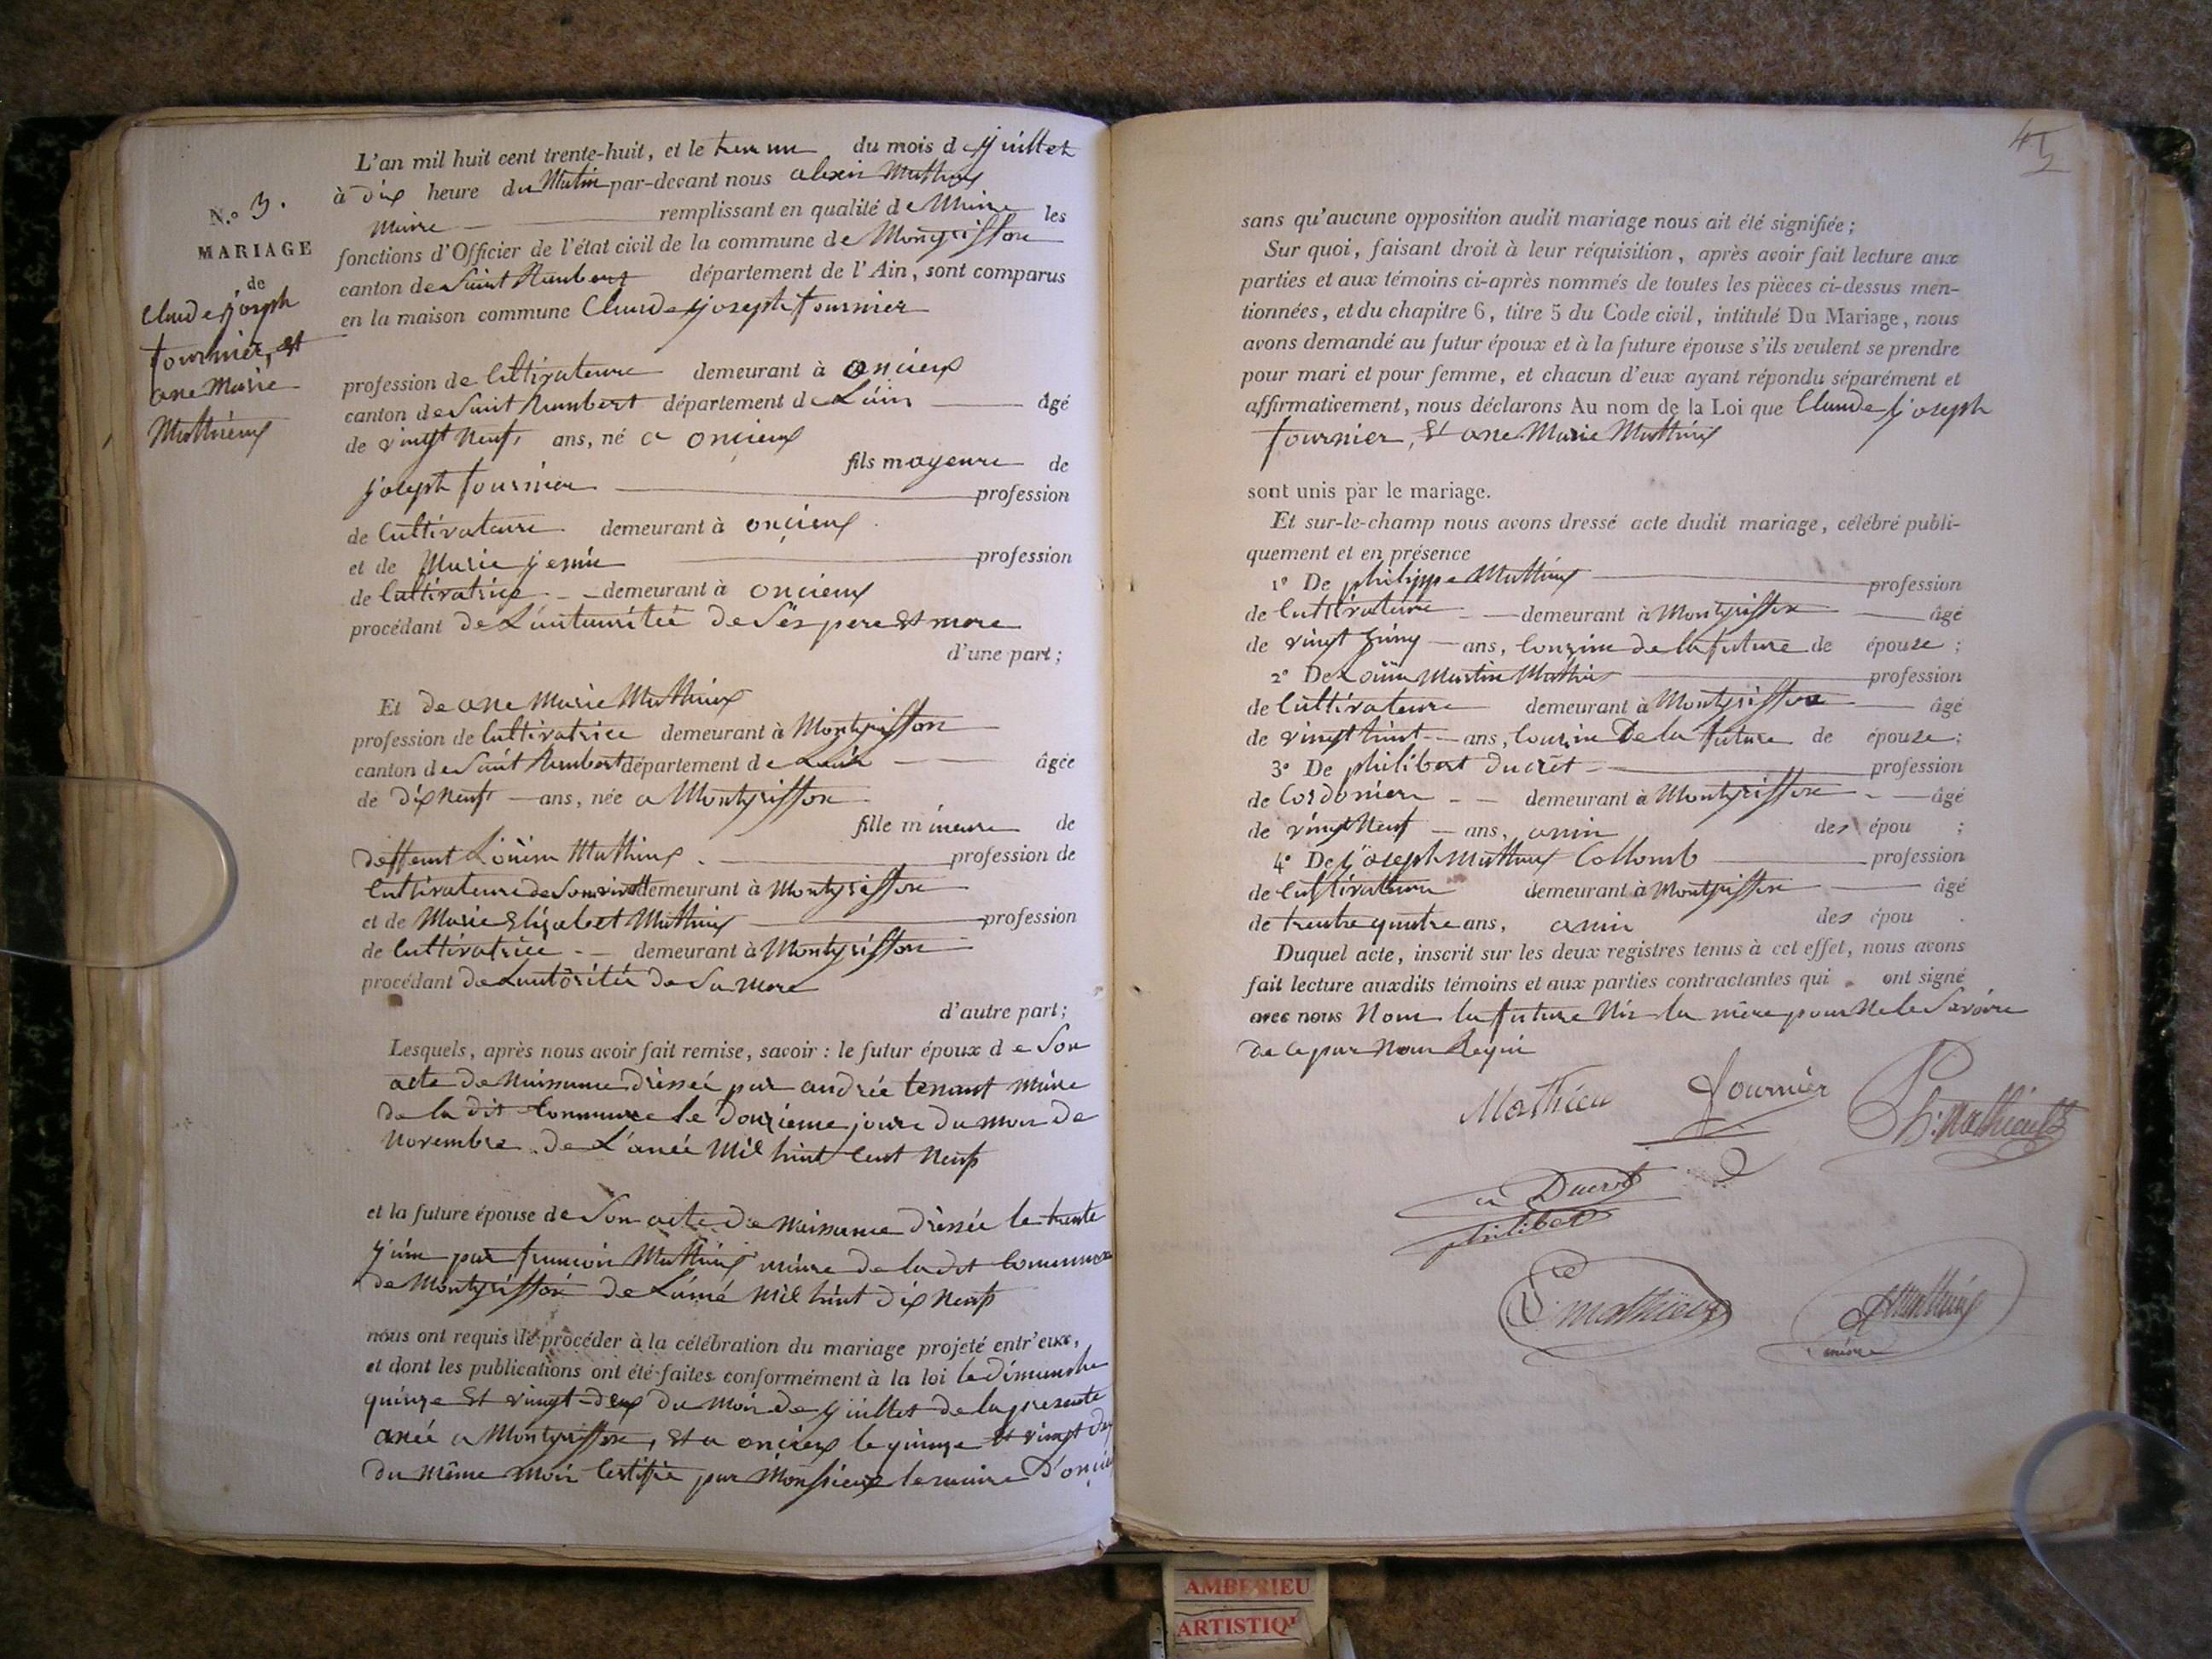 L'an mil huit cent trente-huit, et le du mois de juillet
à dix heure du Matin par-devant nous alexis Mathieux
Maire remplissant en qualité de Maire les
fonctions d'Officier de l'état civil de la commune de Montgriffon
canton de Saint Rambert département de l'Ain, sont comparus
en la maison commune Claude joseph fournier
N.° 3.
MARIAGE
de
Claude joseph
fournier, et
ane Marie
Mathieux
profession de Cultivateure demeurant à oncieux
canton de Saint Rambert département de L'ain âgé
de vingt Neuf ans, né a oncieux
fils mayeure de
joseph fournier profession
de Cultivateure demeurant à oncieux
et de Marie jenin profession
de Cultivatrice demeurant à oncieux
procédant de L'autauritéé de Ses pere et mere
d'une part;
Et de ane Marie Mathieux
profession de Cultivatrice demeurant à Montgriffon
canton de Saint Rambert département de Lain âgée
de dix Neuf ans, née a Montgriffon
fille mineure de
deffeunt Mathieux profession de
Cultivateure de Son vivant demeurant à Montgriffon
et de Marie Elizabet Mathieux profession
de Cultivatrice demeurant à Montgriffon
procédant de Lautôritéé de Sa Mere
d'autre part;
Lesquels, après nous avoir fait remise, savoir : le futur époux de Son
acte de Naissance dresséé par andrée tenant Maire
de la dit Commune le douzieme joure du mois de
Novembre de L'anéé Mil huit Cent Neuf
et la future épouse de Son acte de Naissance dresséé le trente
juin par francois Mathieux maire de la dit Commune
de Montgriffon de L'ané Mil huit dix Neuf
nous ont requis de procéder à la célébration du mariage projeté entr'eux,
et dont les publications ont été faites conformément à la loi le dimanche
quinze Et vingt-deux du Mois de juillet de la presente
anéé a Montgriffon, Et a oncieux le quinze Et vingt deux
du Même Mois Certifie par Monsieur le maire d'oncieu
sans qu'aucune opposition audit mariage nous ait été signifiée;
Sur quoi, faisant droit à leur réquisition, après avoir fait lecture aux
parties et aux témoins ci-après nommés de toutes les pièces ci-dessus men-
tionnées, et du chapitre 6, titre 5 du Code civil, intitulé Du Mariage, nous
avons demandé au futur époux et à la future épouse s'ils veulent se prendre
pour mari et pour femme, et chacun d'eux ayant répondu séparément et
affirmativement, nous déclarons Au nom de la Loi que Claude joseph
fournier, Et ane Marie Mathieux
sont unis par le mariage.
Et sur-le-champ nous avons dressé acte dudit mariage, célébré publi-
quement et en présence
1° De philippe Mathieux profession
de Cultivateure demeurant à Montgriffon âgé
de vingt ans, Couzin de la future de épouse ;
2° De Martin Mathieu profession
de Cultivateure demeurant à Montgriffon âgé
de vingt huit ans, Couzin de la future de épouse;
3° De philibert ducret profession
de Cordonier demeurant à Montgriffon âgé
de vingt Neuf ans, amin des épou ;
4° De joseph Mathieux Collomb profession
de Cultivateure demeurant à Montgriffon âgé
de trentre quatre ans, amin des épou .
Duquel acte, inscrit sur les deux registres tenus à cet effet, nous avons
fait lecture auxdits témoins et aux parties contractantes qui ont signé
avec nous Nom la future Ni la mère pour Ne le Savoire
de ce par Nous Requi
Mathieu fournier Ph: Mathieux
Ducret
philibert
mathieux AMathieux
maire
AMBERIEU
ARTISTIQU